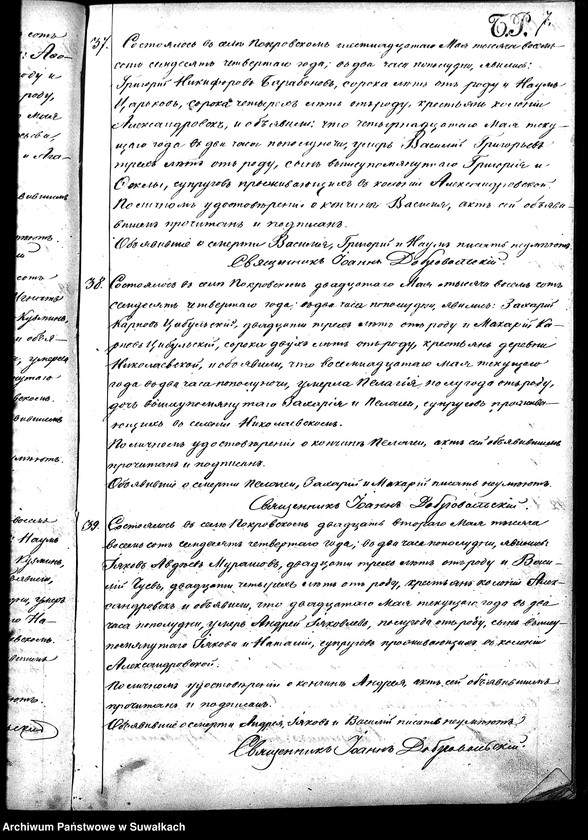 Б.Р. 7.
37. Состоялось въ селѣ Покровскомъ шестнадцатаго Мая тысяча восемь
сотъ семдесятъ четвертаго года; въ два часа пополудни, явились:
Григорій Никифоровъ Барабоновъ, сорока лѣтъ отъ роду и Наумъ
Царьковъ, сорока четырехъ лѣтъ отъ роду, крестьяне колоніи
Александровскъ, и объявили: что четырнадцатаго Мая теку-
щаго года въ два часа пополуночи, умеръ Василій Григорьевъ
трехъ лѣтъ отъ роду, сынъ вышеупомянутаго Григорія и
Феклы, супруговъ проживающихъ въ колоніи Александровской.
По личномъ удостовѣреніи о кончинѣ Василія, актъ сей объяви-
вшимъ прочитанъ и подписанъ.
Объявившіе о смерти Василія, Григорій и Наумъ писать неумѣютъ.
Священникъ Іоаннъ Добровольскій.
38. Состоялось въ селѣ Покровскомъ двадцатаго Мая тысяча восемь сотъ
семдесятъ четвертаго года; въ два часа пополудни, явились: Захарій
Карповъ Цибульскій, двадцати трехъ лѣтъ отъ роду и Макарій Ка-
рповъ Цибульскій, сорока двухъ лѣтъ отъ роду, крестьяне деревни
Николаевской, и объявили, что восемнадцатаго Мая текущаго
года въ два часа пополуночи, умерла Пелагія, полугода отъ роду,
дочь вышеупомянутаго Захарія и Пелагіи, супруговъ прожива-
ющихъ въ селеніи Николаевскомъ.
По личномъ удостовѣреніи о кончинѣ Пелагіи, актъ сей объявившимъ
прочитанъ и подписанъ.
Объявившіе о смерти Пелагіи, Захарій и Макарій писать неумѣютъ.
Священникъ Іоаннъ Добровольскій.
39. Состоялось въ селѣ Покровскомъ двадцать втораго Мая тысяча
восемь сотъ семдесятъ четвертаго года; въ два часа пополудни, явились:
Іяковъ Авдѣевъ Мурашовъ, двадцати трехъ лѣтъ отъ роду и Васи-
лій Гусевъ, двадцати четырехъ лѣтъ отъ роду, крестьяне колоніи Алек-
сандровскъ и объявили, что двадцатаго Мая текущаго года въ два
часа пополудни, умеръ Андрей Іяковлевъ, полугода отъ роду, сынъ вышеу-
помянутаго Іякова и Наталіи, супруговъ проживающихъ въ колоніи
Александровской.
По личномъ удостовѣреніи о кончинѣ Андрея, актъ сей объявившимъ
прочитанъ и подписанъ.
Объявившіе о смерти Андрея, Іяковъ и Василій писать неумѣютъ.
Священникъ Іоаннъ Добровольскій.
Archiwum Państwowe w Suwałkach